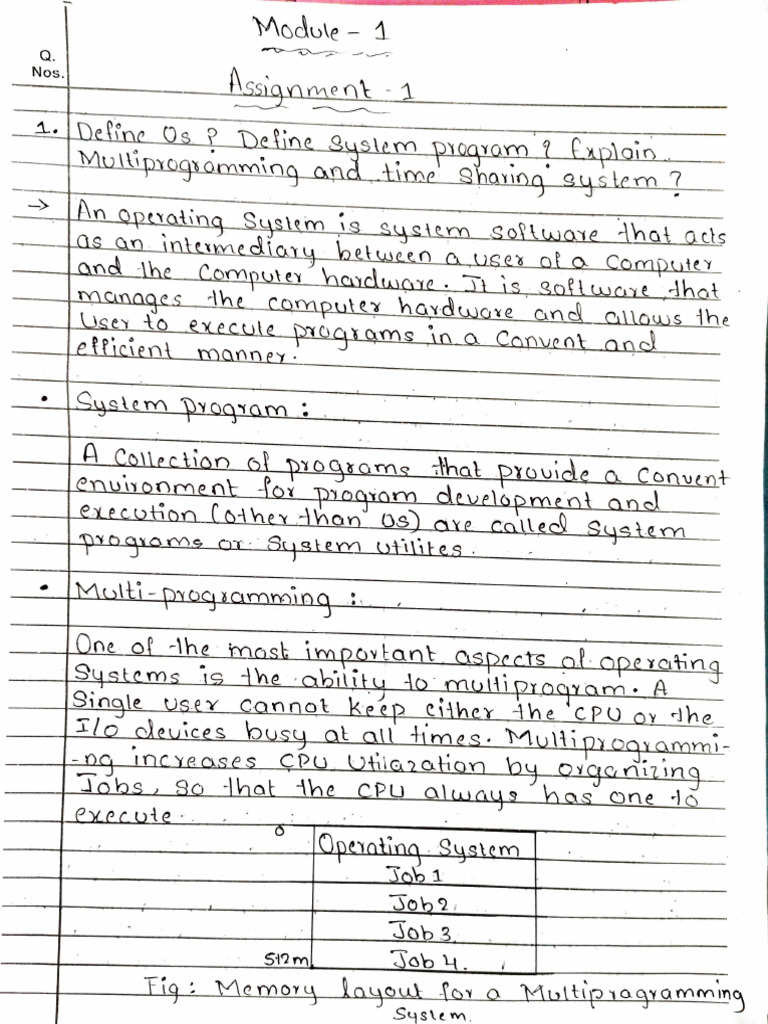 Module - 1
Q.
Nos.
Assignment - 1
1. Define Os ? Define system program ? Explain
Multiprogramming and time sharing system ?
→ An operating System is system software that acts
as an intermediary between a user of a computer
and the Computer hardware. It is software that
manages the computer hardware and allows the
User to execute programs in a Convent and
efficient manner.
• System program :
A Collection of programs that provide a Convent
environment for program development and
execution (other than Os) are called System
programs or System utilites.
• Multi-programming :
One of the most important aspects of operating
Systems is the ability to multiprogram. A
Single user cannot keep either the CPU or the
I/o devices busy at all times. Multiprogrammi-
-ng increases CPU Utilazation by organizing
Jobs, so that the CPU always has one to
execute.
0
Operating System
Job 1
Job 2
Job 3
512m Job 4.
Fig : Memory layout for a Multipragramming
System.